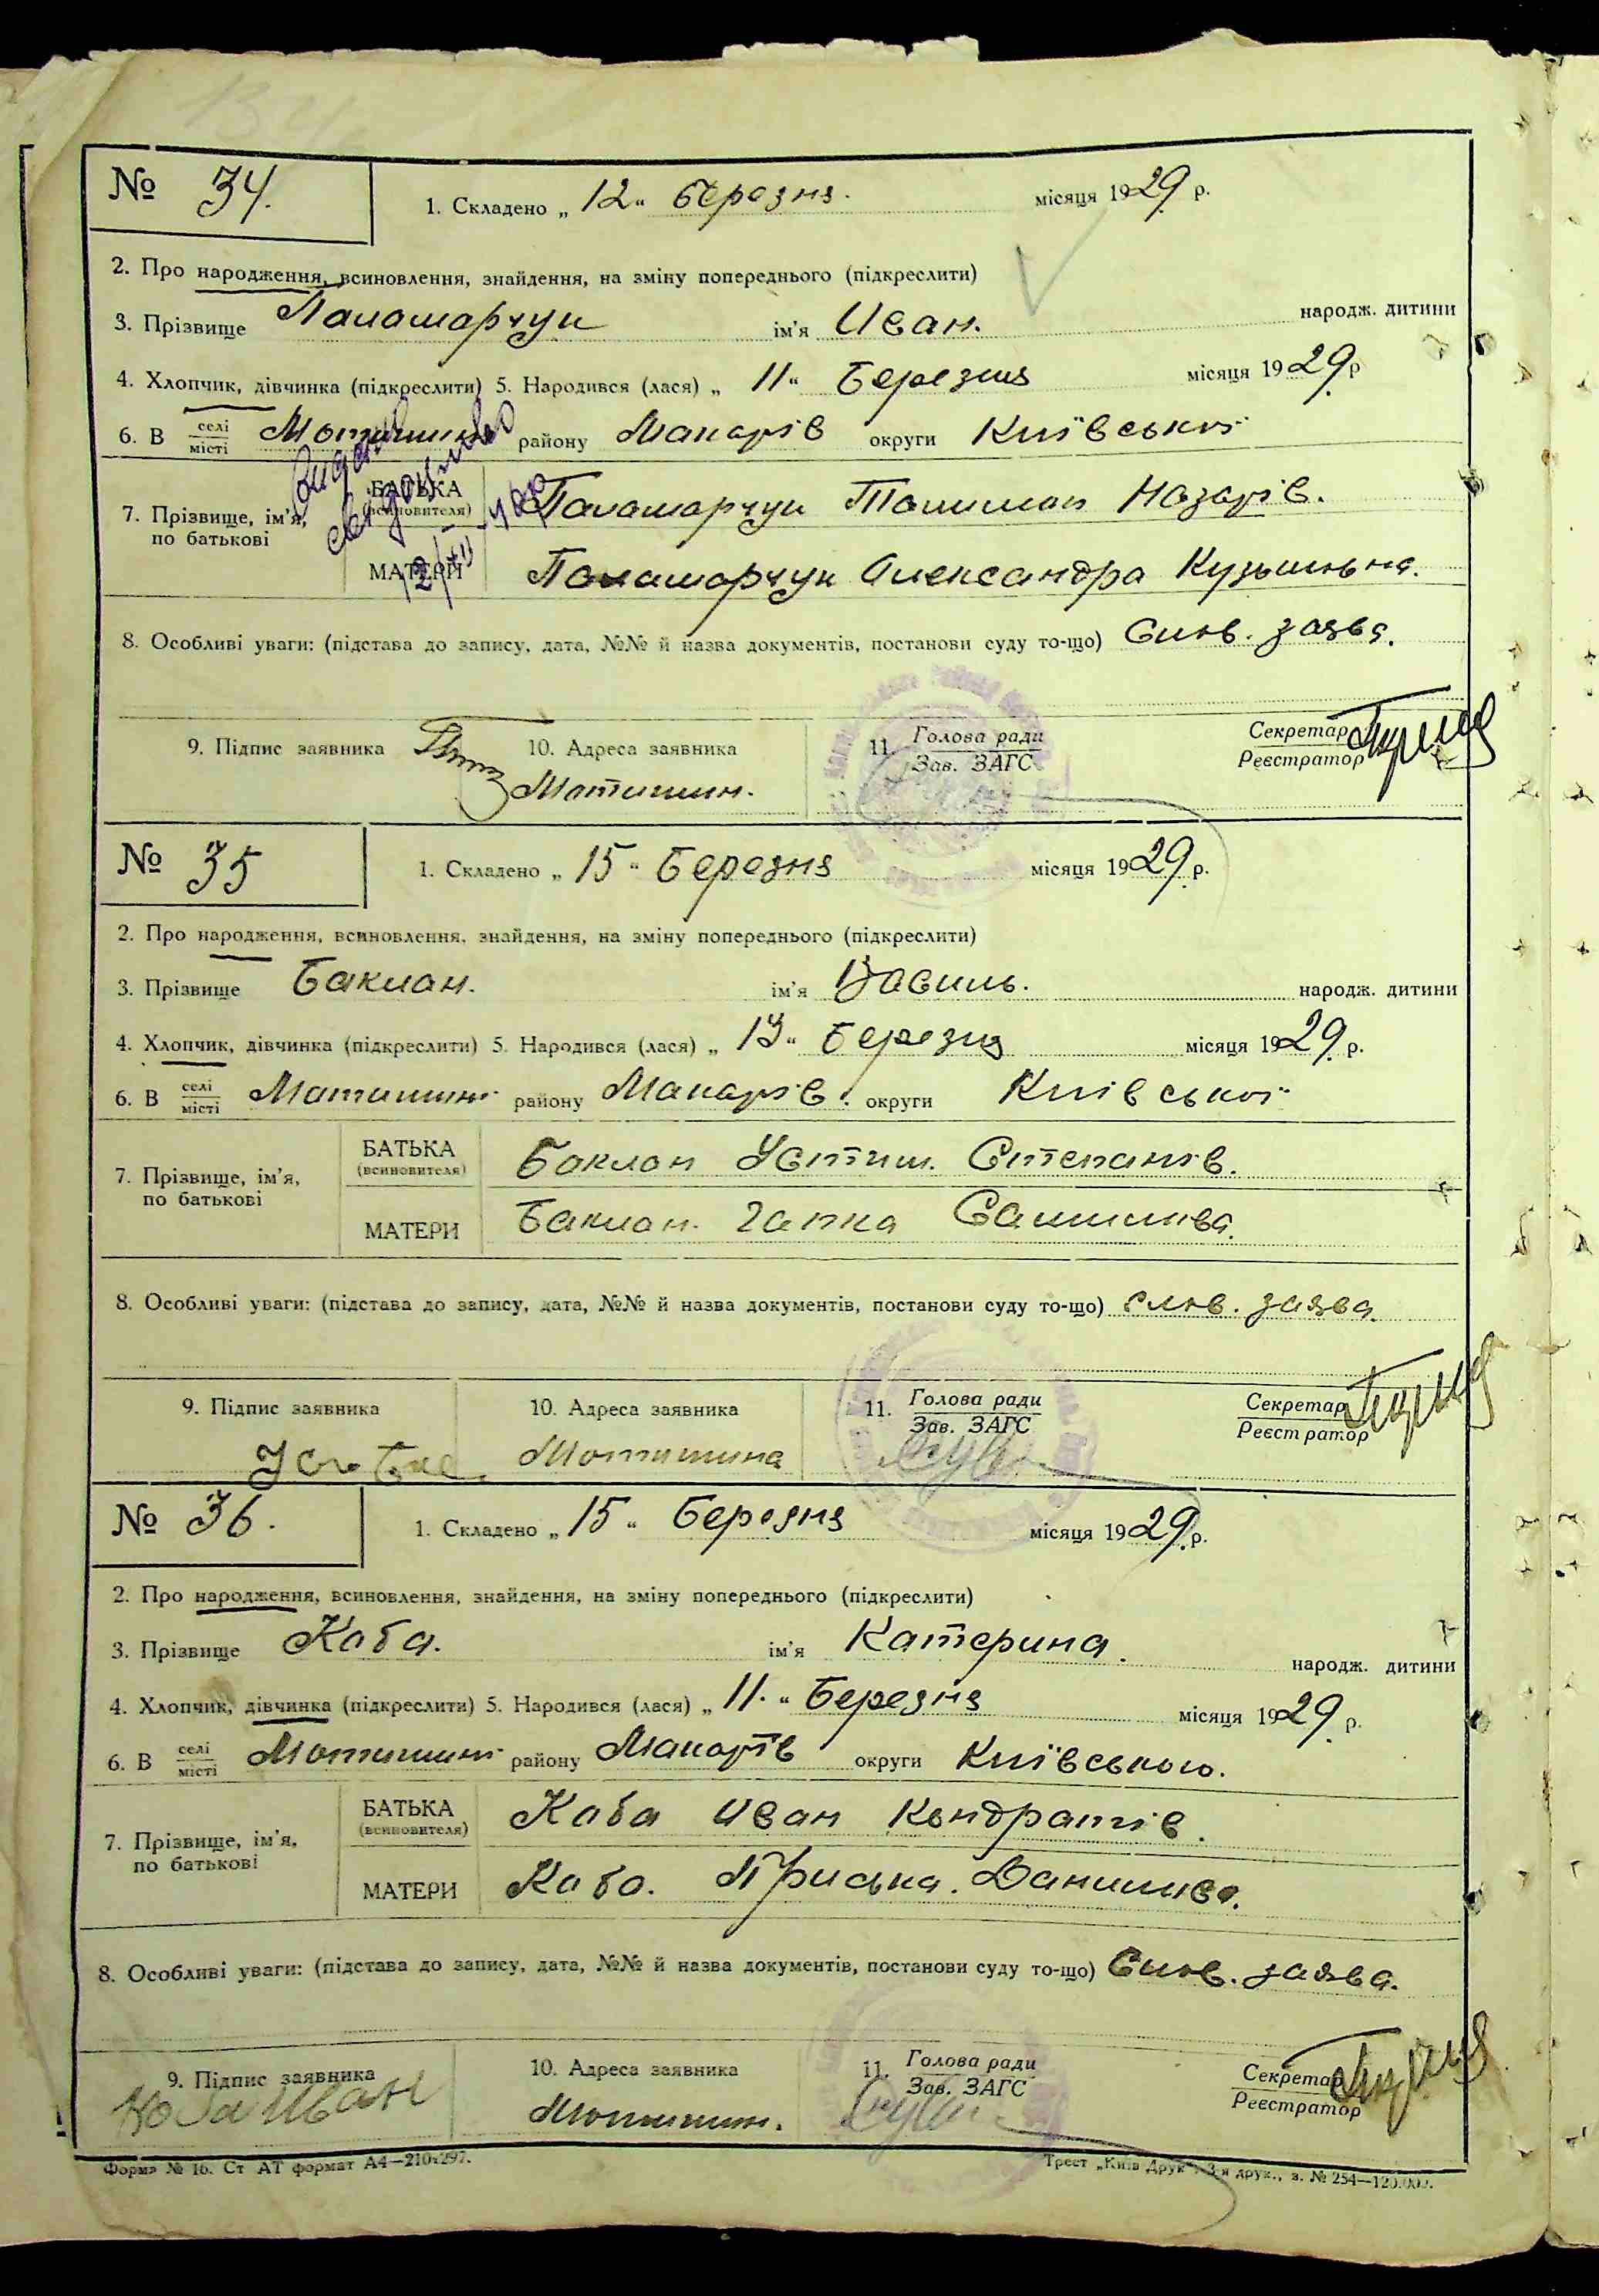 № 34. 1. Складено „ 12 “ березня. місяця 1929 р.
2. Про народження, всиновлення, знайдення, на зміну попереднього (підкреслити)
3. Прізвище Паламарчук ім'я Иван. народж. дитини
4. Хлопчик, дівчинка (підкреслити) 5. Народився (лася) „ 11 “ Березня місяця 1929 р
6. В селі місті Мотижині району Макарів округи Київської
7. Прізвище, ім'я, по батькові
БАТЬКА (всиновителя) Паламарчук Назарів.
МАТЕРИ Паламарчук Александра Кузьмівна.
видано свідоцтво
8. Особливі уваги: (підстава до запису, дата, №№ й назва документів, постанови суду то-що) Слов. заява.
9. Підпис заявника 10. Адреса заявника 11. Голова ради Зав. ЗАГС Секретар Реєстратор
Мотижин.
№ 35 1. Складено „ 15 “ Березня місяця 1929 р.
2. Про народження, всиновлення, знайдення, на зміну попереднього (підкреслити)
3. Прізвище Баклан. ім'я Василь. народж. дитини
4. Хлопчик, дівчинка (підкреслити) 5. Народився (лася) „ 13 “ Березня місяця 1929 р.
6. В селі місті Мотижині району Макарів. округи Київської
7. Прізвище, ім'я, по батькові
БАТЬКА (всиновителя) Баклан Устим. Степанів.
МАТЕРИ Баклан. Гапка
8. Особливі уваги: (підстава до запису, дата, №№ й назва документів, постанови суду то-що) слов. заява.
9. Підпис заявника 10. Адреса заявника 11. Голова ради Зав. ЗАГС Секретар Реєстратор
Мотижина
№ 36. 1. Складено „ 15 “ Березня місяця 1929 р.
2. Про народження, всиновлення, знайдення, на зміну попереднього (підкреслити)
3. Прізвище Каба. ім'я Катерина. народж. дитини
4. Хлопчик, дівчинка (підкреслити) 5. Народився (лася) „ 11. “ Березня місяця 1929 р.
6. В селі місті Мотижині району Макарів округи Київського.
7. Прізвище, ім'я, по батькові
БАТЬКА (всиновителя) Каба Иван Кондратів.
МАТЕРИ Каба. Приська. Данилива.
8. Особливі уваги: (підстава до запису, дата, №№ й назва документів, постанови суду то-що) Слов. заява.
9. Підпис заявника 10. Адреса заявника 11. Голова ради Зав. ЗАГС Секретар Реєстратор
Коба Иван Мотижин.
Форма № 16. Ст АТ формат А4—210x297. Трест „Київ Друк“, 3-я друк., з. № 254—120.000.